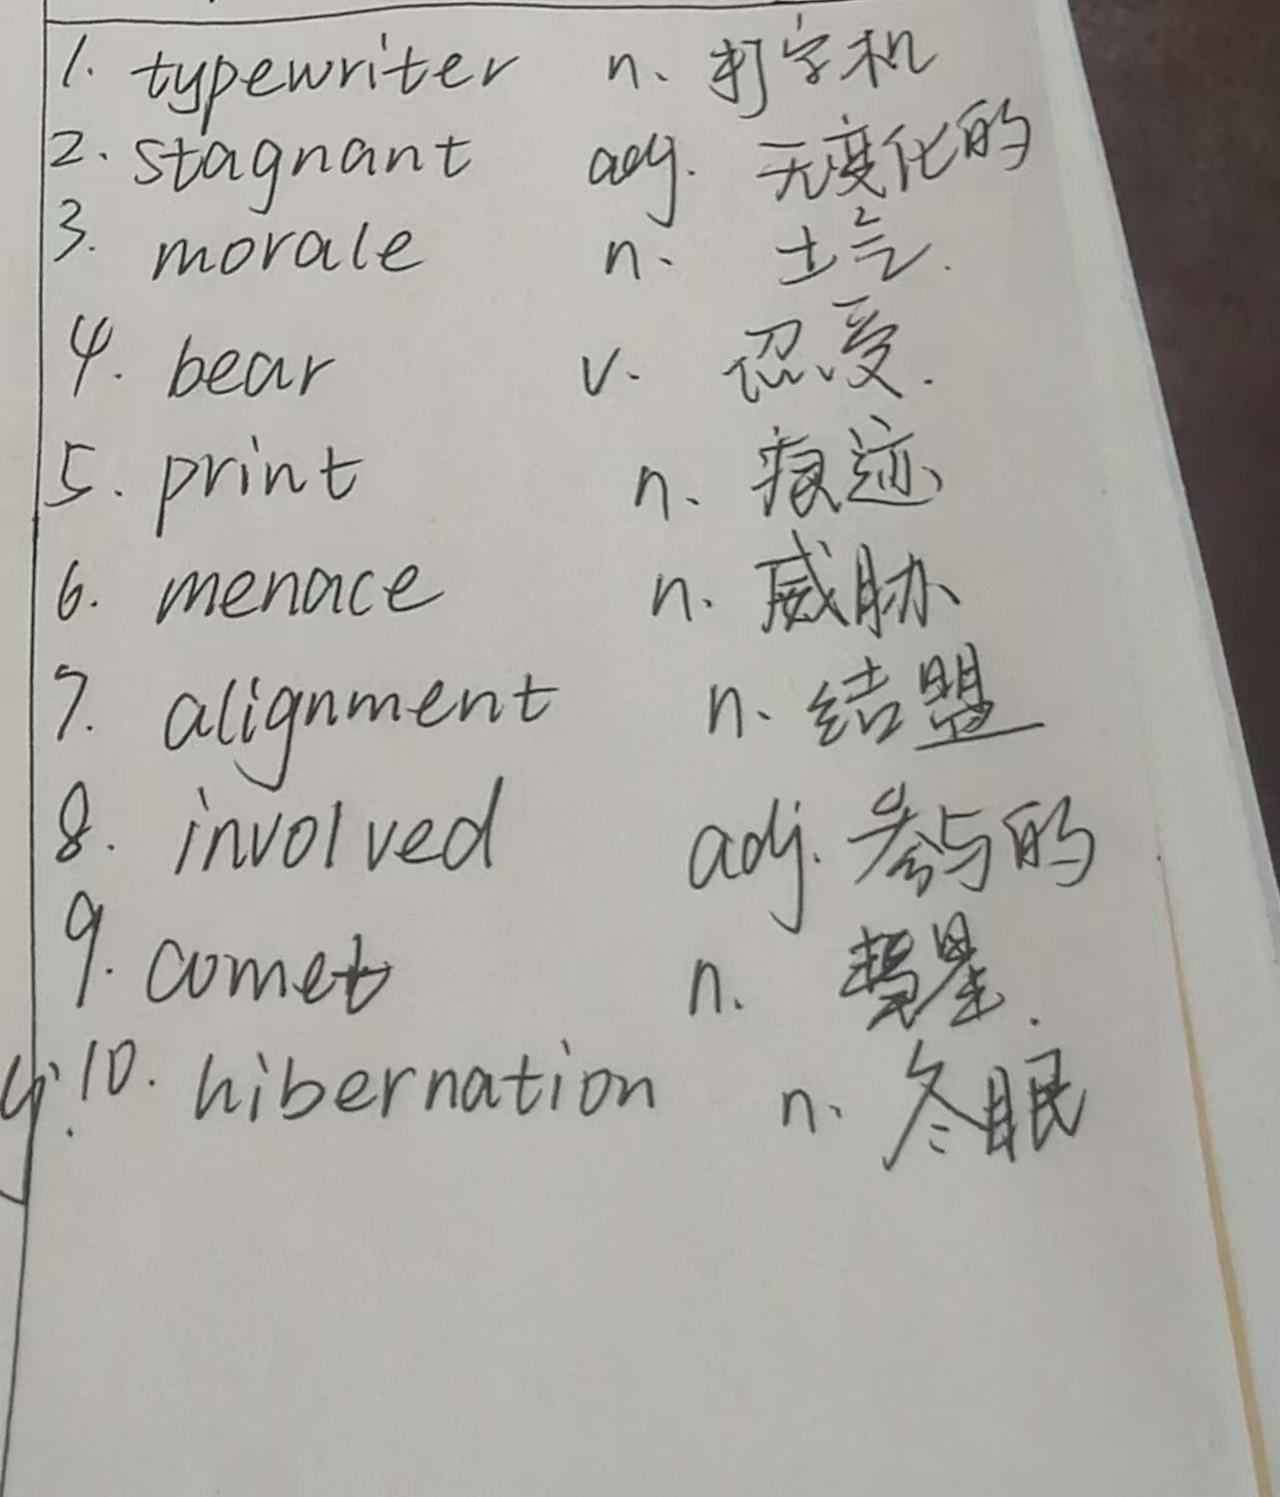 1. typewriter n. 打字机
2. stagnant adj. 无变化的
3. morale n. 士气.
4. bear v. 忍受.
5. print n. 痕迹
6. menace n. 威胁
7. alignment n. 结盟
8. involved adj. 参与的
9. comet n. 彗星.
10. hibernation n. 冬眠